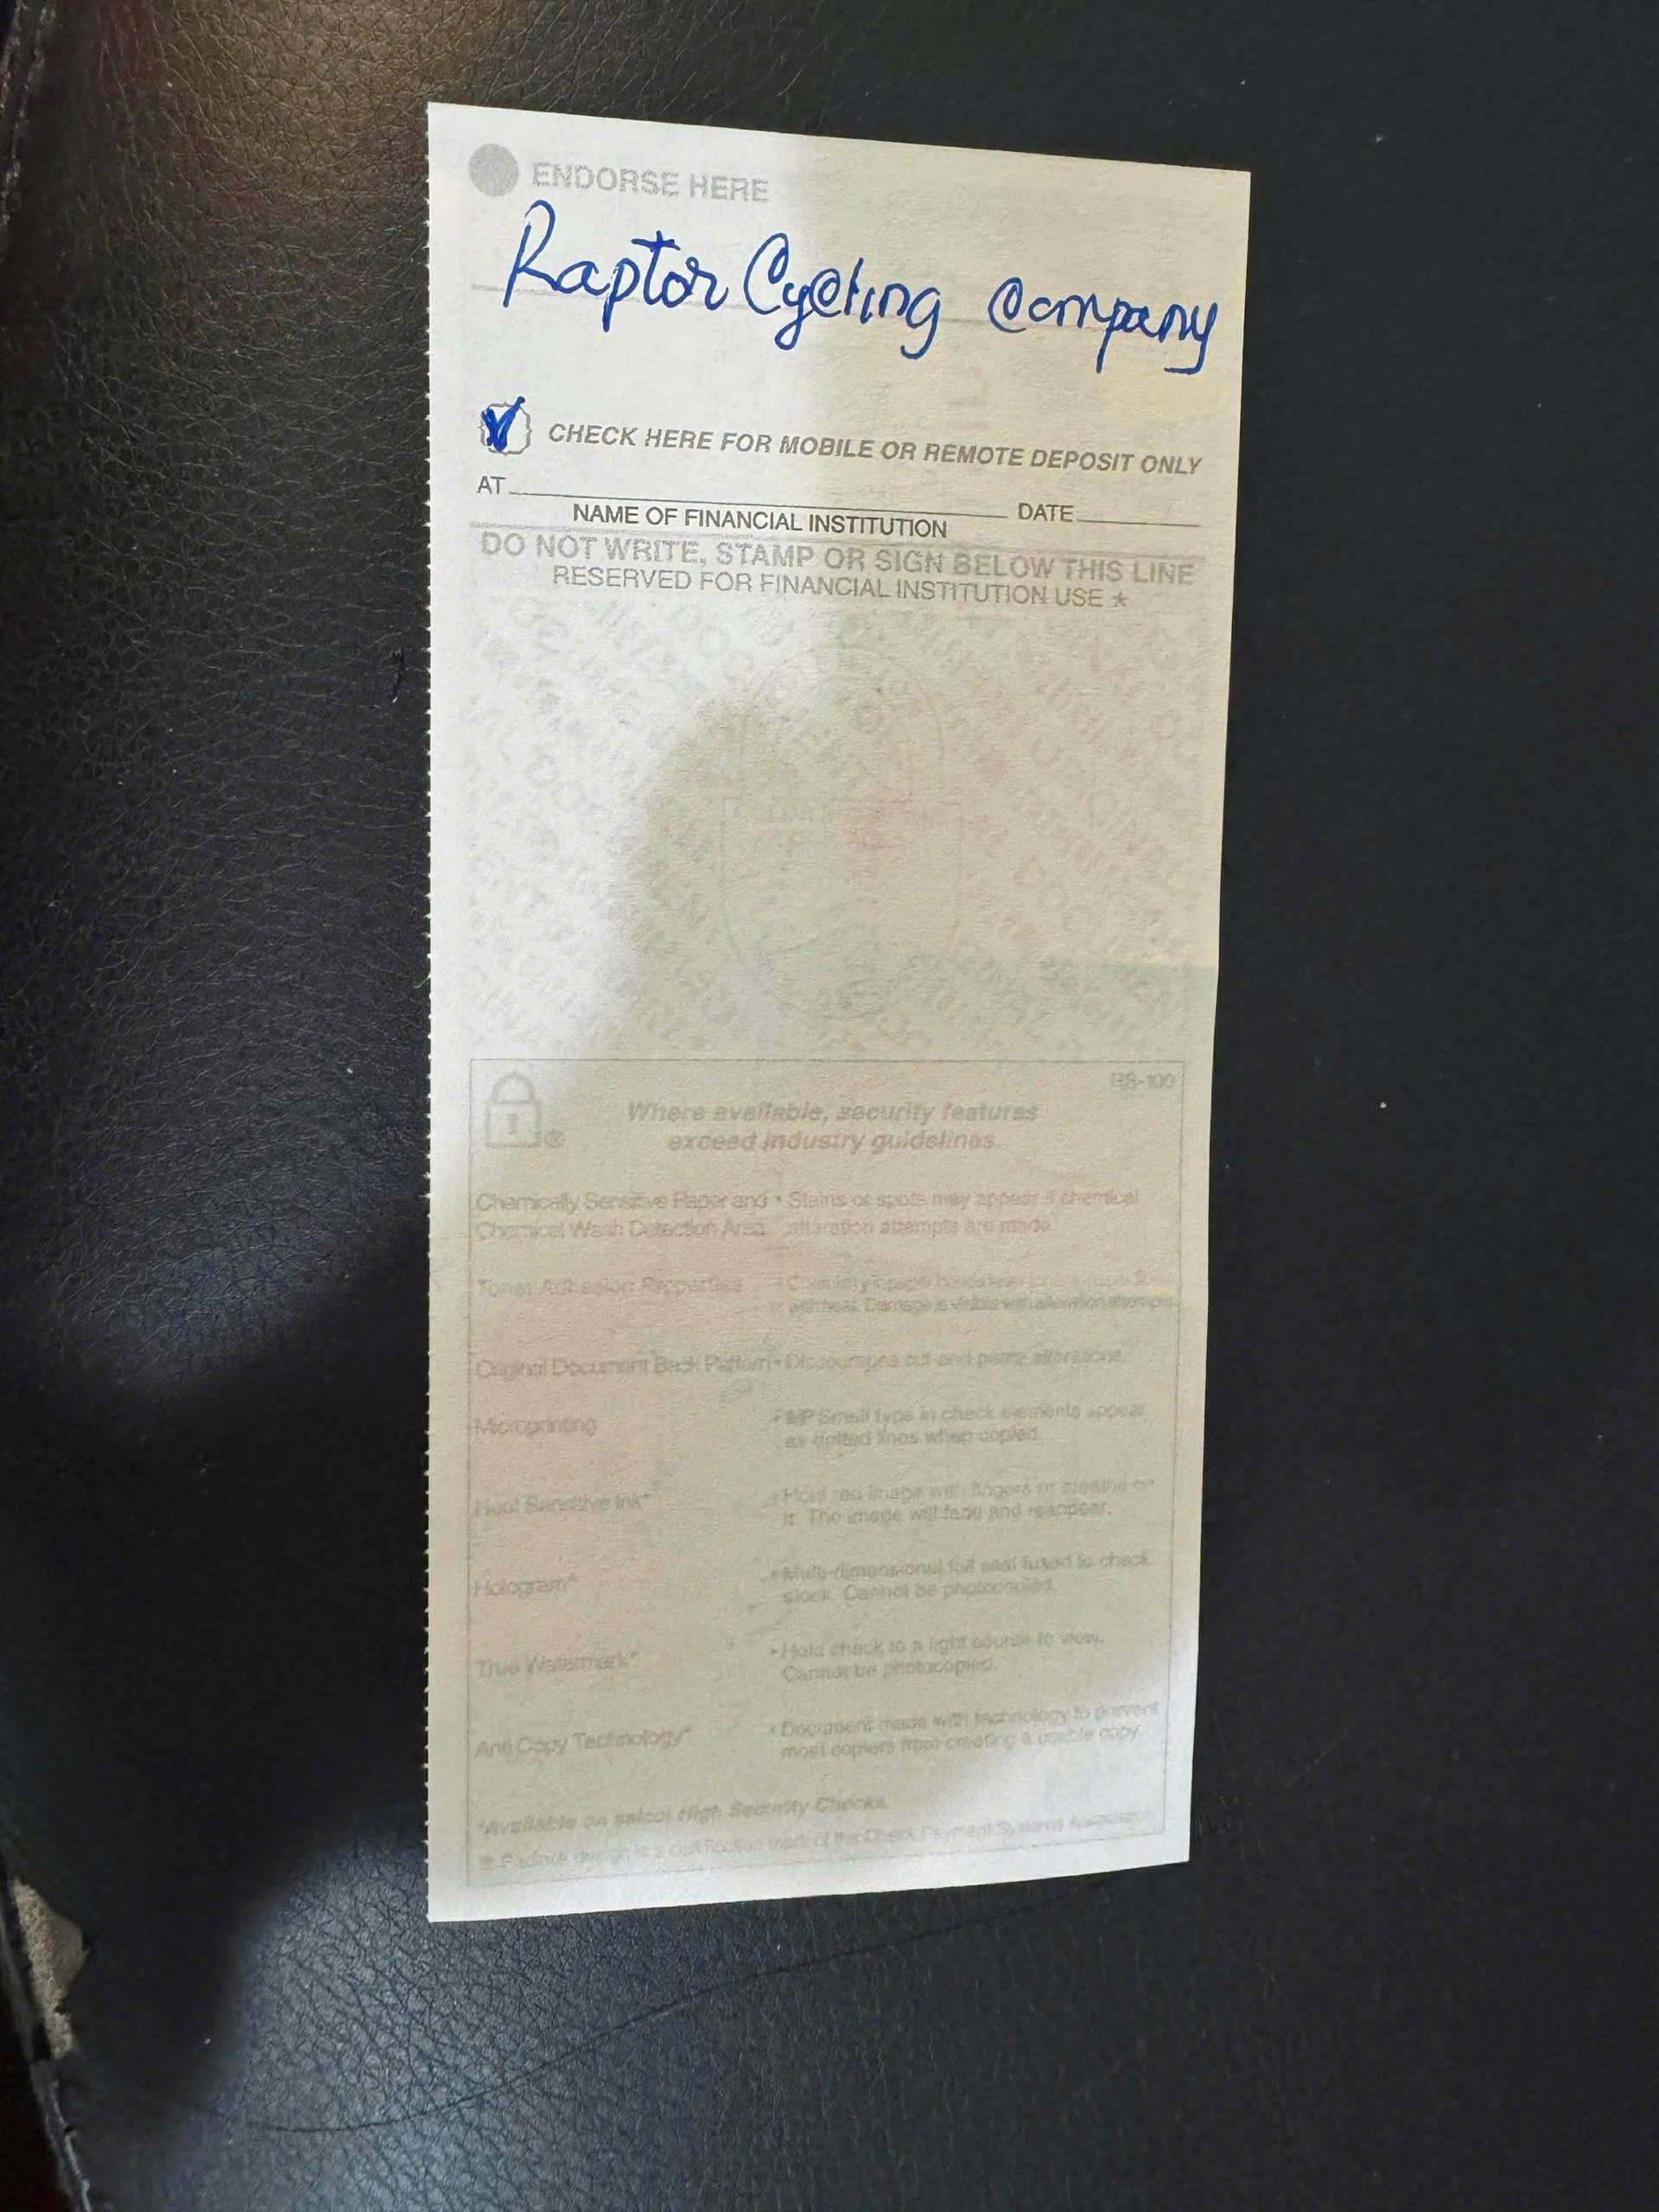 ENDORSE HERE
Raptor Cycling Company
CHECK HERE FOR MOBILE OR REMOTE DEPOSIT ONLY
AT DATE
NAME OF FINANCIAL INSTITUTION
DO NOT WRITE, STAMP OR SIGN BELOW THIS LINE
RESERVED FOR FINANCIAL INSTITUTION USE *
RS-100
Where available, security features
exceed industry guidelines.
Chemically Sensitive Paper and • Stains or spots may appear if chemical
Chemical Wash Detection Area alteration attempts are made.
Toner Adhesion Properties
with heat. Damage is visible with alteration attempts.
Original Document Back Pattern • Discourages cut and paste alterations.
Microprinting • MP Small type in check elements appear
as dotted lines when copied.
Heat Sensitive Ink* • Hold red image with fingers or breathe on
it. The image will fade and reappear.
Hologram* • Multi-dimensional foil seal fused to check
stock. Cannot be photocopied.
True Watermark* • Hold check to a light source to view.
Cannot be photocopied.
Anti Copy Technology* • Document made with technology to prevent
most copiers from creating a usable copy.
*Available on select High Security Checks.
® Padlock design is a certification mark of the Check Payment Systems Association